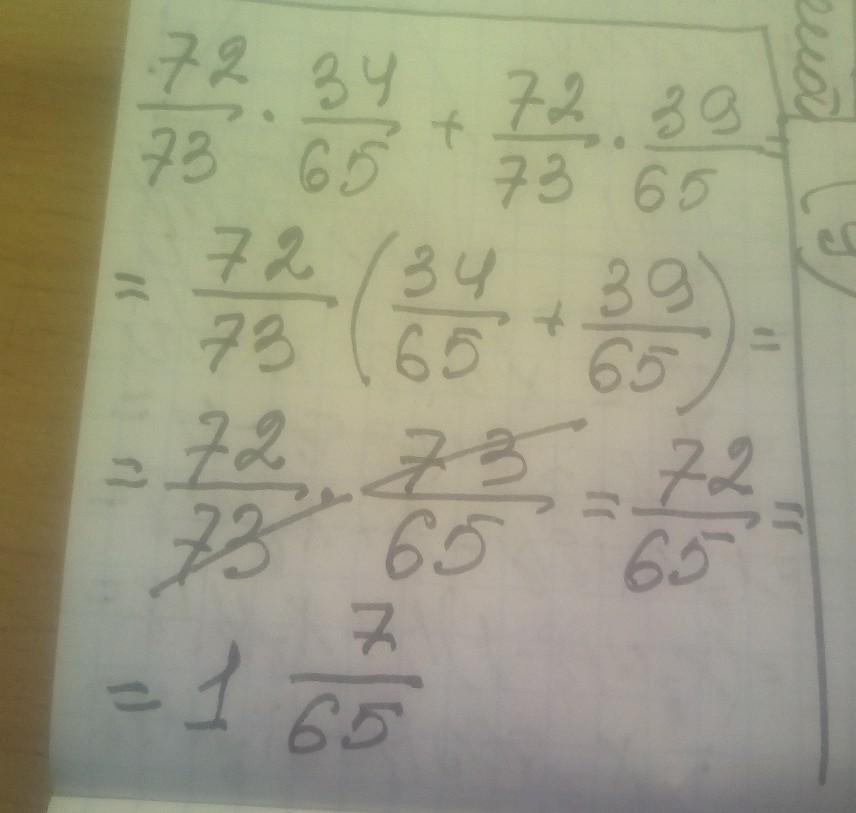 72/73 · 34/65 + 72/73 · 39/65 =
= 72/73 (34/65 + 39/65) =
= 72/73 · 73/65 = 72/65 =
= 1 7/65